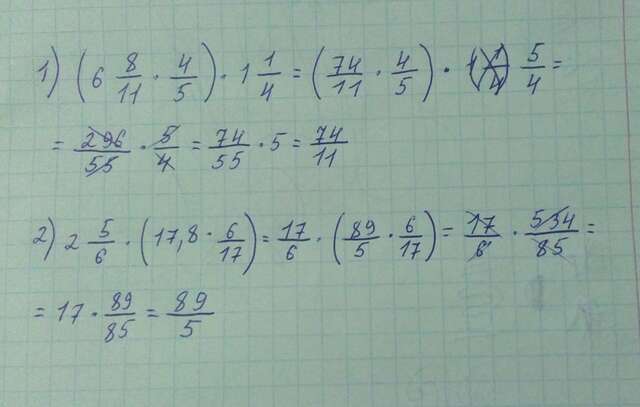 1) (6 8/11 · 4/5) · 1 1/4 = (74/11 · 4/5) · 5/4 =
= 296/55 · 5/4 = 74/55 · 5 = 74/11
2) 2 5/6 · (17,8 · 6/17) = 17/6 · (89/5 · 6/17) = 17/6 · 534/85 =
= 17 · 89/85 = 89/5